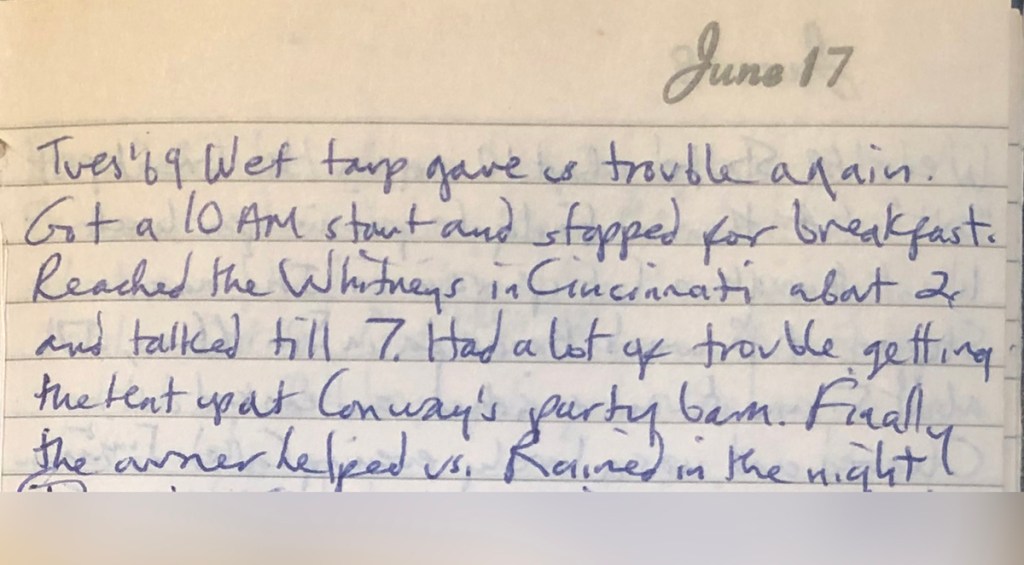 June 17
Tues '69 Wet tarp gave us trouble again.
Got a 10 AM start and stopped for breakfast.
Reached the Whitneys in Cincinnati about 2
and talked till 7. Had a lot of trouble getting
the tent up at Conway's party barn. Finally
the owner helped us. Rained in the night!